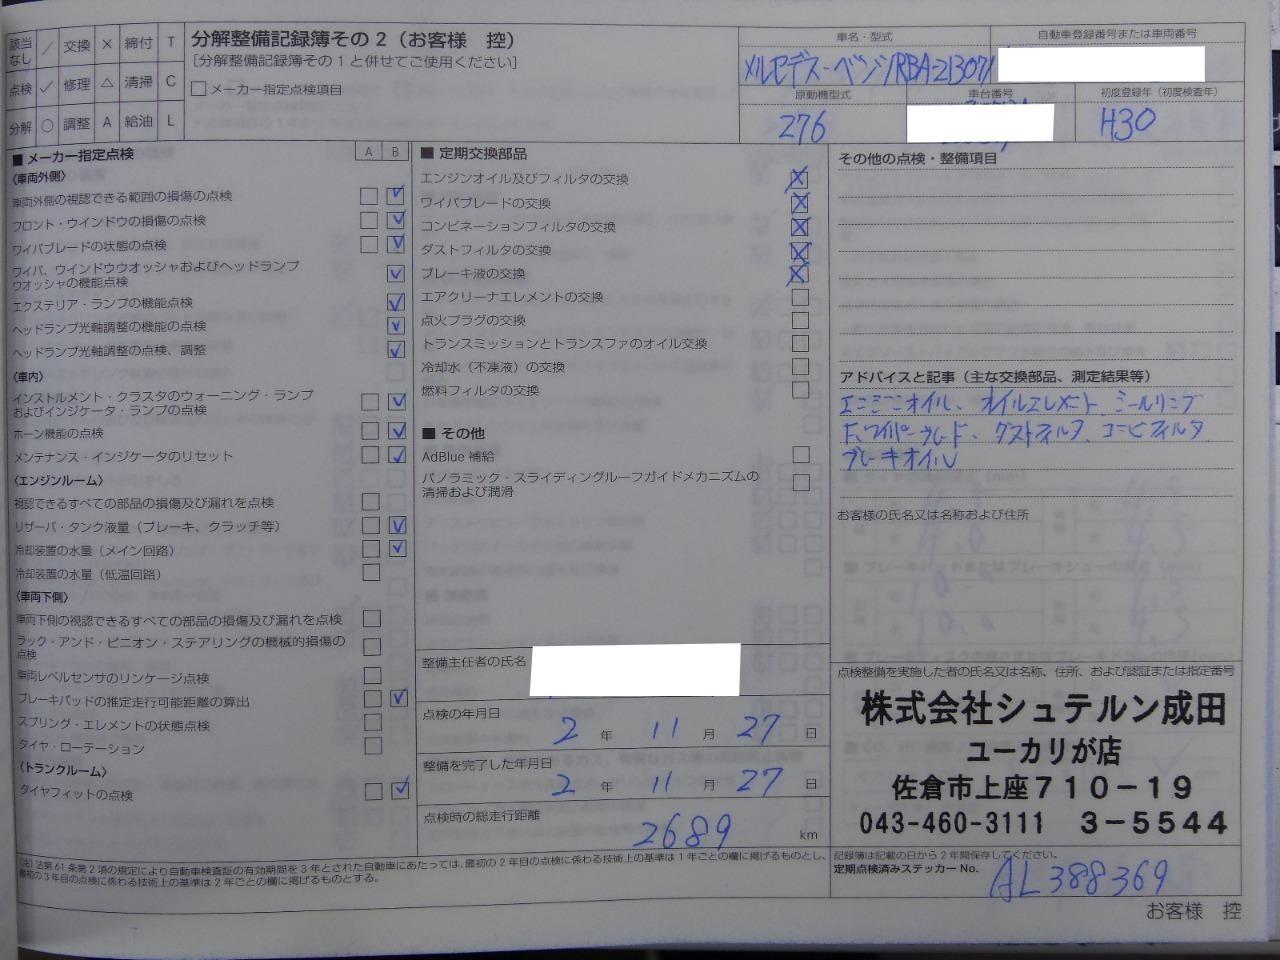 該当なし ／ 交換 × 締付 T
点検 ✓ 修理 △ 清掃 C
分解 ○ 調整 A 給油 L
分解整備記録簿その2（お客様　控）
［分解整備記録簿その1と併せてご使用ください］
□ メーカー指定点検項目
車名・型式
メルセデス-ベンツ/RBA-213071
自動車登録番号または車両番号
原動機型式
276
車台番号
初度登録年（初度検査年）
H30
■ メーカー指定点検 A B
〈車両外側〉
車両外側の視認できる範囲の損傷の点検
フロント・ウインドウの損傷の点検
ワイパブレードの状態の点検
ワイパ、ウインドウウオッシャおよびヘッドランプ
ウオッシャの機能点検
エクステリア・ランプの機能点検
ヘッドランプ光軸調整の機能の点検
ヘッドランプ光軸調整の点検、調整
〈車内〉
インストルメント・クラスタのウォーニング・ランプ
およびインジケータ・ランプの点検
ホーン機能の点検
メンテナンス・インジケータのリセット
〈エンジンルーム〉
視認できるすべての部品の損傷及び漏れを点検
リザーバ・タンク液量（ブレーキ、クラッチ等）
冷却装置の水量（メイン回路）
冷却装置の水量（低温回路）
〈車両下側〉
車両下側の視認できるすべての部品の損傷及び漏れを点検
ラック・アンド・ピニオン・ステアリングの機械的損傷の
点検
車両レベルセンサのリンケージ点検
ブレーキパッドの推定走行可能距離の算出
スプリング・エレメントの状態点検
タイヤ・ローテーション
〈トランクルーム〉
タイヤフィットの点検
■ 定期交換部品
エンジンオイル及びフィルタの交換
ワイパブレードの交換
コンビネーションフィルタの交換
ダストフィルタの交換
ブレーキ液の交換
エアクリーナエレメントの交換
点火プラグの交換
トランスミッションとトランスファのオイル交換
冷却水（不凍液）の交換
燃料フィルタの交換
■ その他
AdBlue 補給
パノラミック・スライディングルーフガイドメカニズムの
清掃および潤滑
整備主任者の氏名
点検の年月日
2 年 11 月 27 日
整備を完了した年月日
2 年 11 月 27 日
点検時の総走行距離
2689 km
その他の点検・整備項目
アドバイスと記事（主な交換部品、測定結果等）
エンジンオイル、オイルエレメント、シールリング
F.ワイパーブレード、ダストフィルタ、コンビフィルタ
ブレーキオイル
お客様の氏名又は名称および住所
点検整備を実施した者の氏名又は名称、住所、および認証または指定番号
株式会社シュテルン成田
ユーカリが店
佐倉市上座７１０－１９
043-460-3111　３－５５４４
（注）法第61条第2項の規定により自動車検査証の有効期間を3年とされた自動車にあたっては、最初の2年目の点検に係わる技術上の基準は1年ごとの欄に掲げるものとし、
最初の3年目の点検に係わる技術上の基準は2年ごとの欄に掲げるものとする。
記録簿は記載の日から2年間保存してください。
定期点検済みステッカーNo.
AL388369
お客様　控